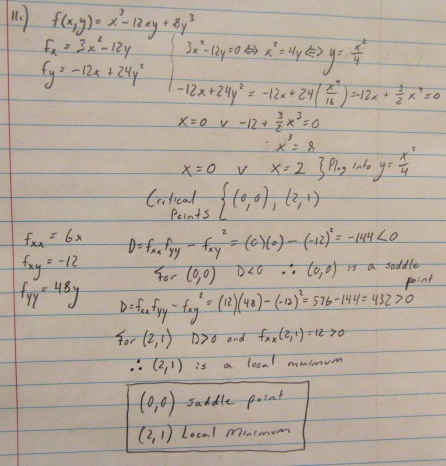 11.) f(x,y) = x³ - 12xy + 8y³
fx = 3x² - 12y
fy = -12x + 24y²
3x² - 12y = 0 ⇔ x² = 4y ⇔ y = x²/4
-12x + 24y² = -12x + 24(x⁴/16) = -12x + 3/2 x⁴ = 0
x = 0 ∨ -12 + 3/2 x³ = 0
x³ = 8
x = 0 ∨ x = 2 } Plug into y = x²/4
Critical Points { (0,0), (2,1)
fxx = 6x
fxy = -12
fyy = 48y
D = fxx fyy - fxy² = (0)(0) - (-12)² = -144 < 0
for (0,0) D < 0 ∴ (0,0) is a saddle point
D = fxx fyy - fxy² = (12)(48) - (-12)² = 576 - 144 = 432 > 0
for (2,1) D > 0 and fxx(2,1) = 12 > 0
∴ (2,1) is a local minimum
(0,0) saddle point
(2,1) Local Minimum